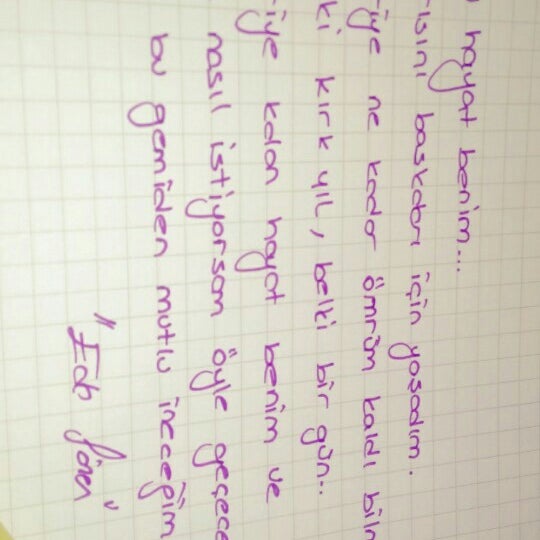 hayat benim...
risini başkaları için yaşadım.
riye ne kadar ömrüm kaldı biln
ki kırk yıl, belki bir gün...
riye kalan hayat benim ve
nasıl istiyorsam öyle geçece
bu gemiden mutlu ineceğim